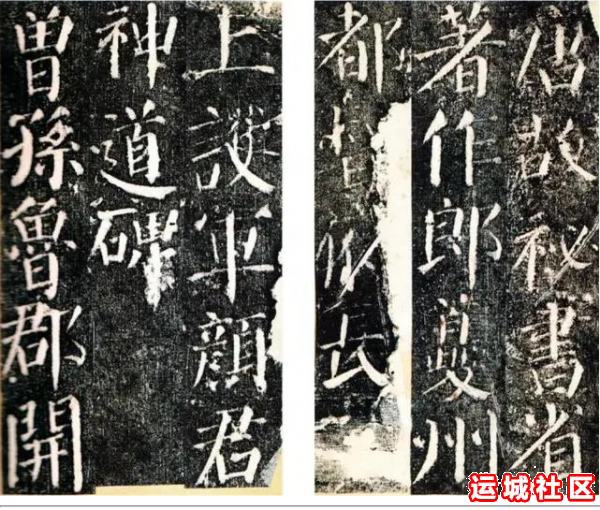 唐故祕書省
著作郎夔州
都督府長
上護軍顏君
神道碑
曾孫魯郡開
运城社区